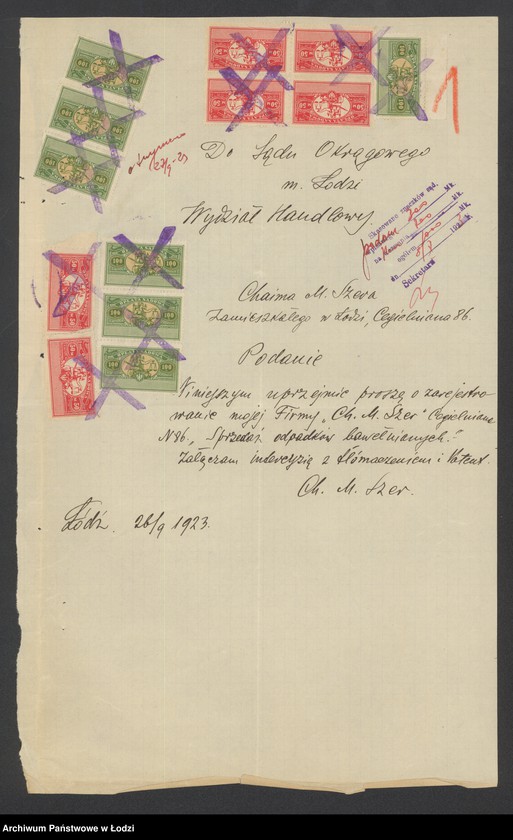 27/9 23
Do Sądu Okręgowego
m. Łodzi
Wydział Handlowy.
Skasowano znaczków sąd.
podanie 200 Mk.
Mk.
ogółem Mk.
dn. 192 r.
Sekretarz
Chaima M. Szera
Zamieszkałego w Łodzi, Cegielniana 86.
Podanie
Niniejszym uprzejmie proszę o zarejestro-
wanie mojej Firmy, "Ch. M. Szer" Cegielniana
N 86, "Sprzedaż odpadków bawełnianych."
Załączam intercyzię z tłómaczeniem i Patent.
Ch. M. Szer.
Łódź. 26/9 1923.
100
100
100
100
50
50
50
50
100
100
100
Archiwum Państwowe w Łodzi